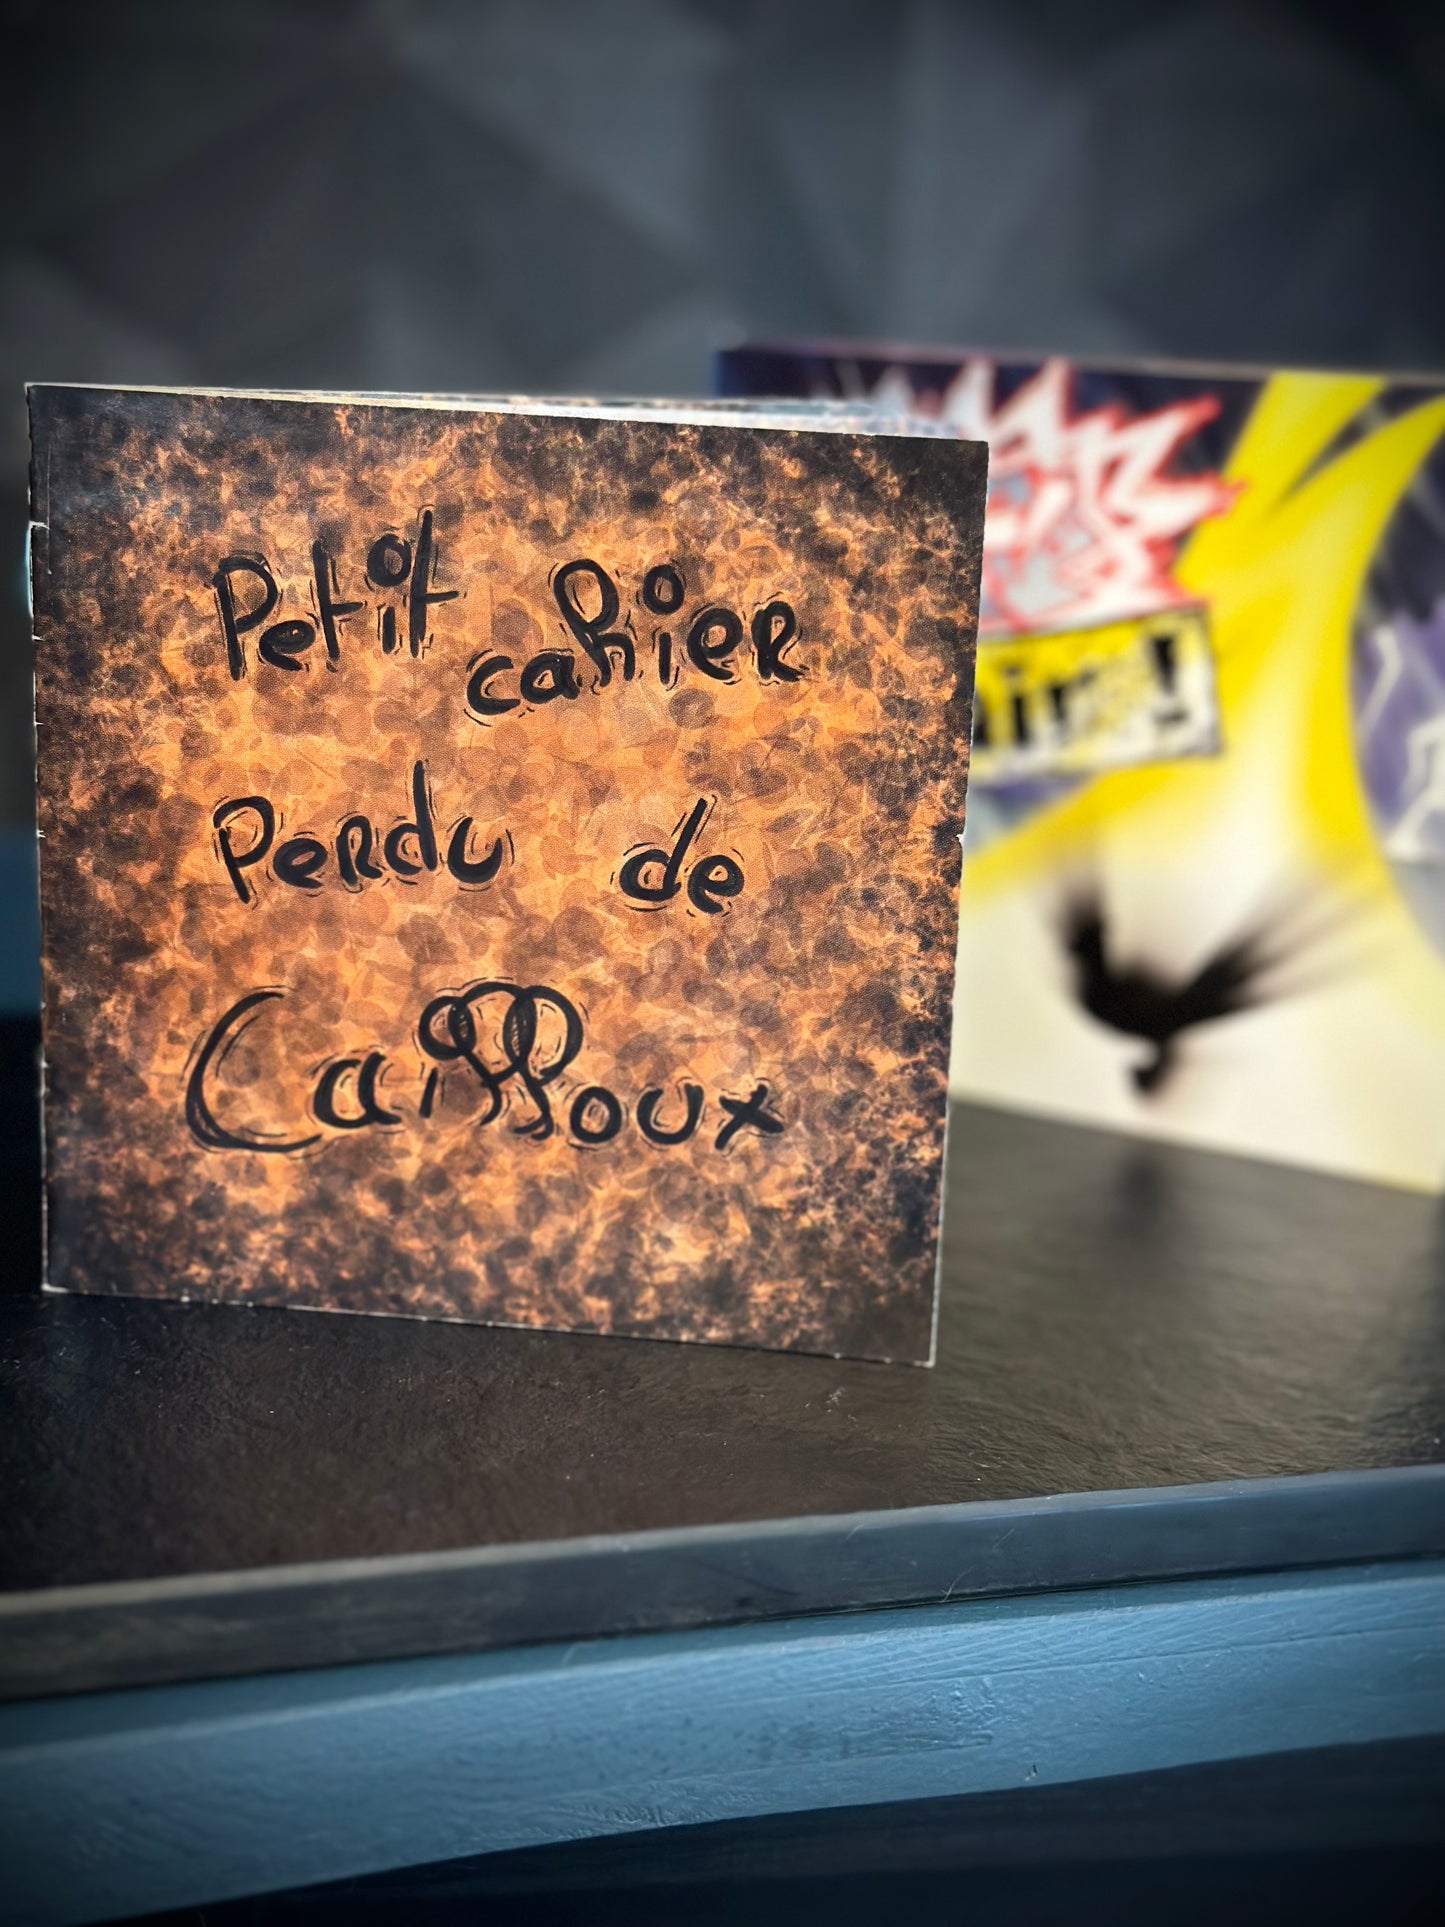 Petit cahier
Perdu de
Cailloux